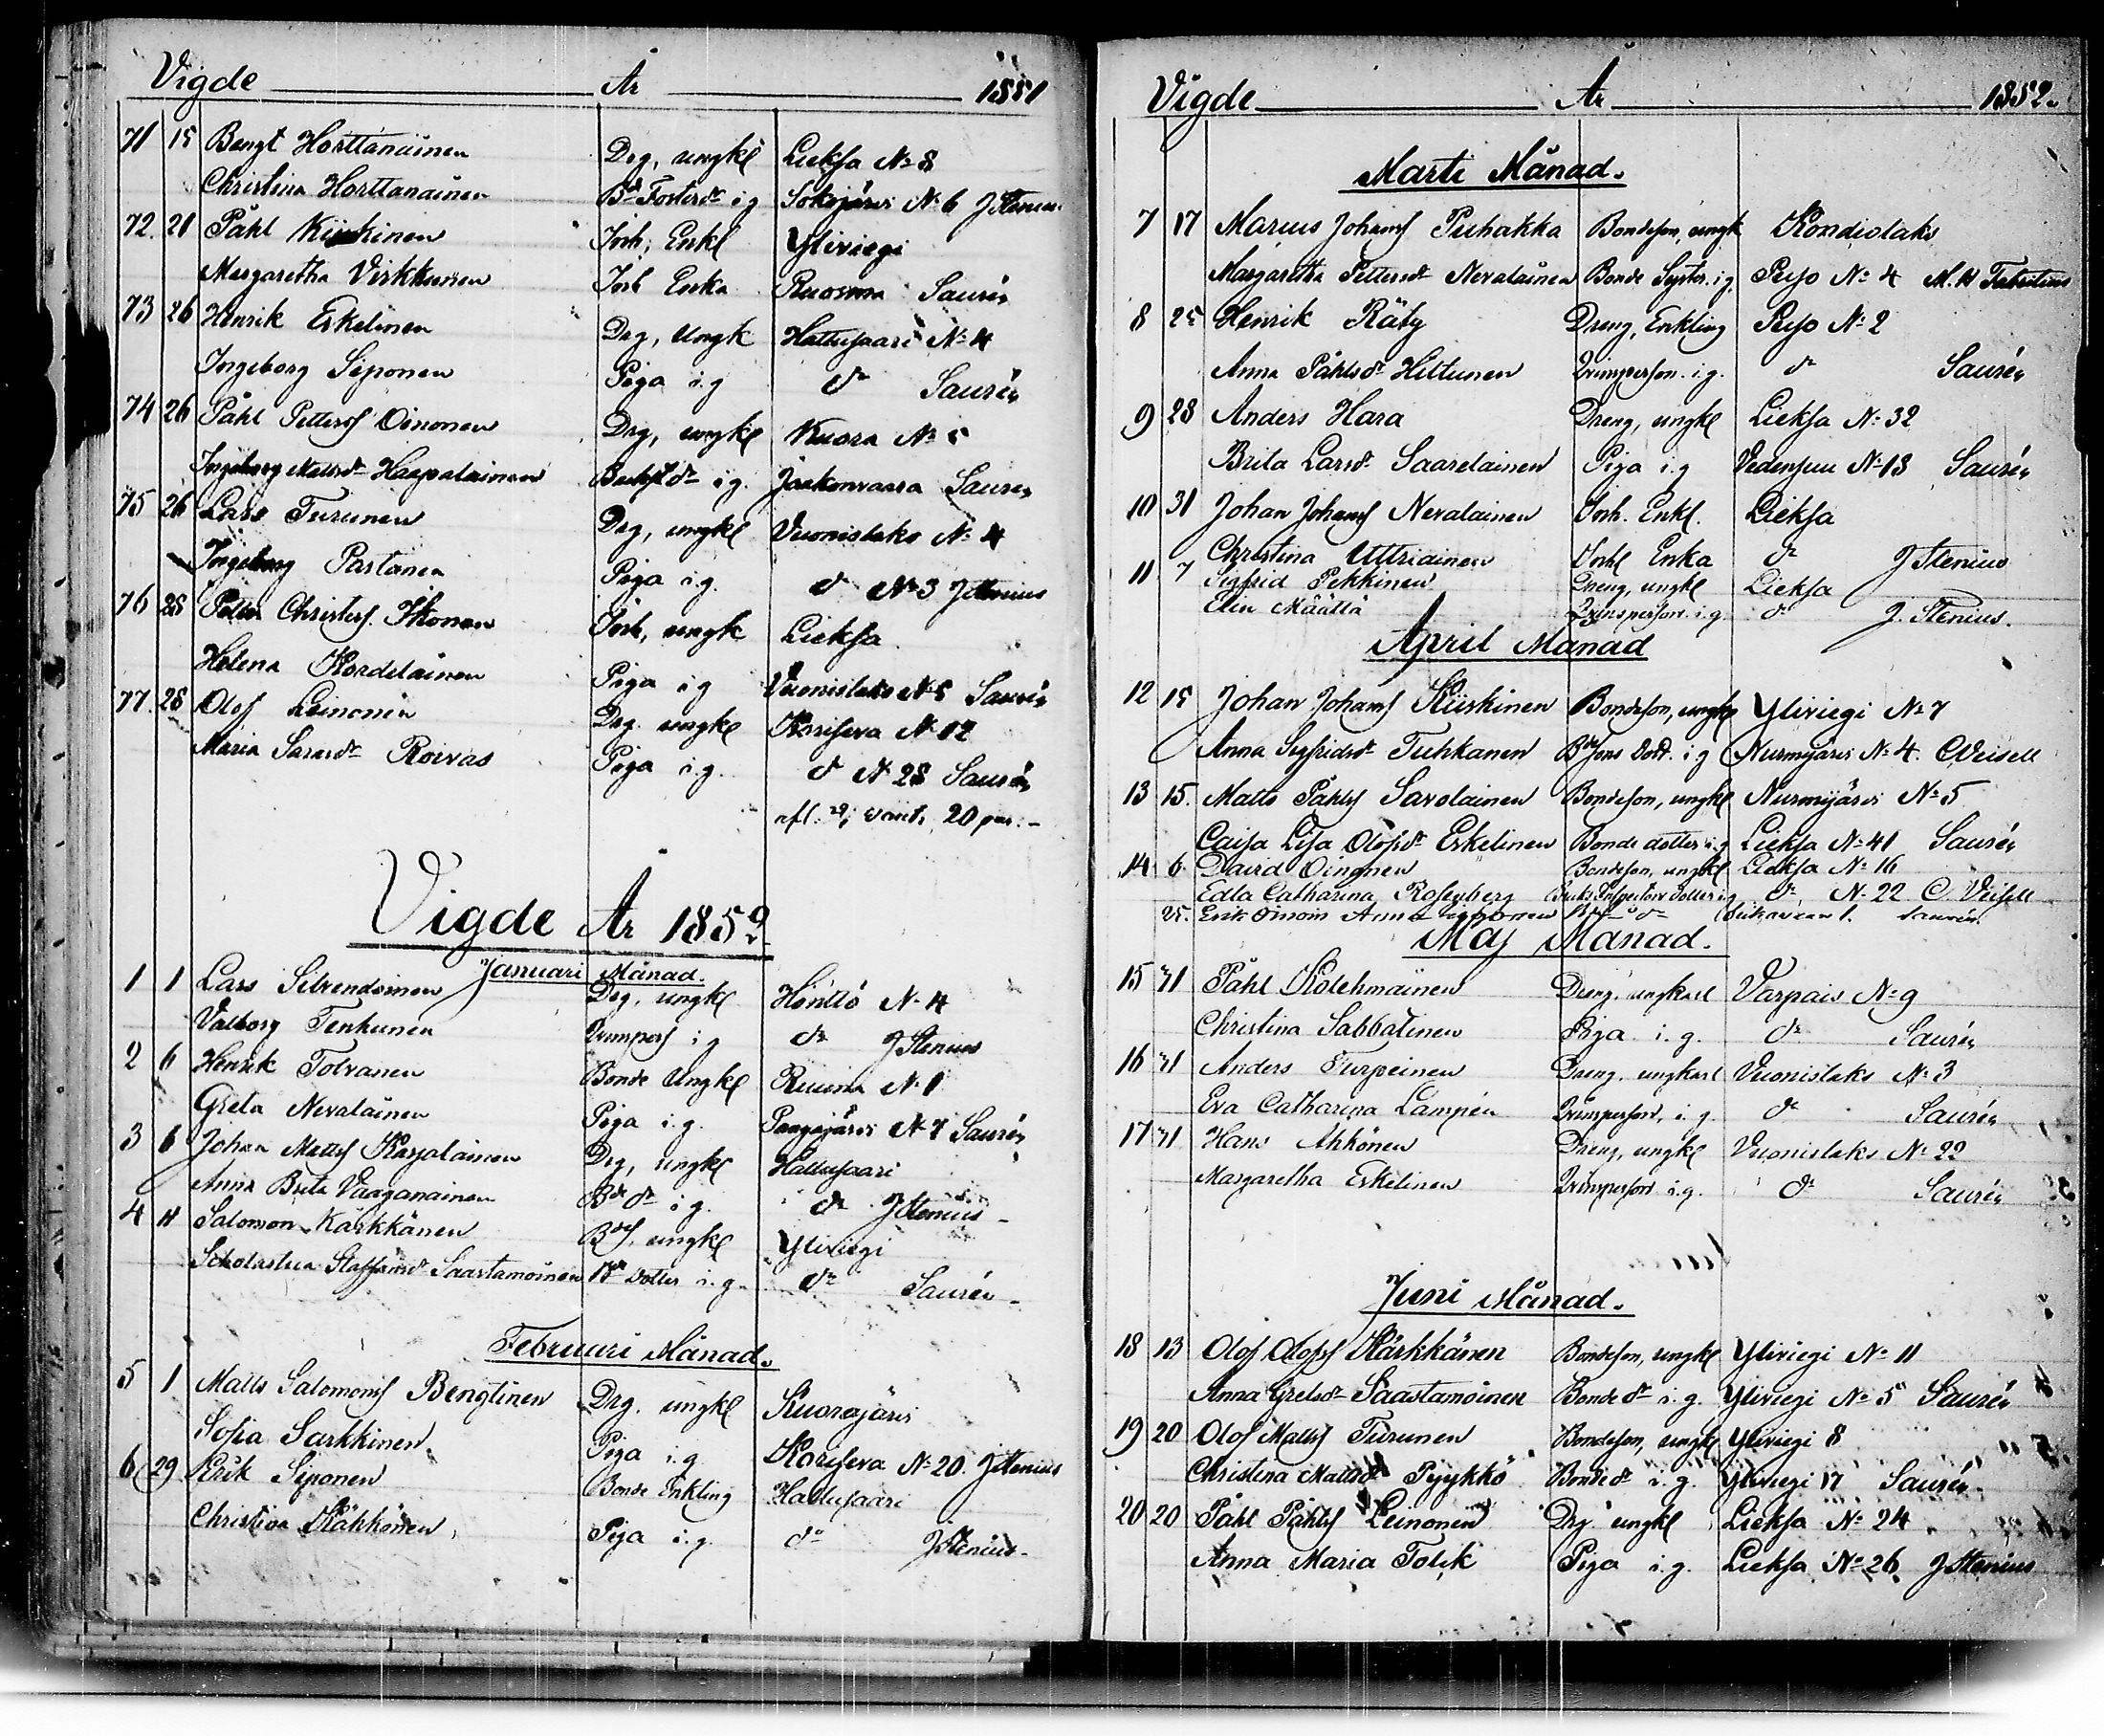 Vigde År 1851
71 15 Bengt Horttanainen Drg, ungkl Lieksa No 8
Christina Horttanainen Bde Fosterdr i.g Sokojärvi No 6 J Stenius
72. 21 Påhl Kiiskinen Inh, Enkl Yliviegi
Margaretha Virkkunen Inh Enka Ruosma Saurén
73 26 Henrik Eskelinen Drg, Ungk Hattusaari No 4
Ingeborg Siponen Piga i.g do Saurén
74 26 Påhl Petters Oinonen Drg, ungkl Kuora No 5
Ingeborg Mattsdr Haapalainen i.g. Jaakonvaara Saurén
75 26 Lars Turunen Drg, ungkl Vuonislaks No 4
Ingeborg Partanen Piga i.g. do No 3 J Stenius
76 28 Petter Christers. Ikonen Inh, ungk Lieksa
Helena Kordelainen Piga i g Vuonislaks No 5 Saurén
77. 28 Olof Leinonen Drg. ungkl Koriseva No 12
Maria Sarasdr Roivas Piga i.g. do No 28 Saurén
20 par.
Vigde År 1852
Januari Månad.
1 1 Lars Silvendoinen Drg, ungkl Hönttö No 4
Valborg Tenhunen Qvinnpers i g do J Stenius
2 6 Henrik Tolvanen Bonde Ungkl Ruuna No 1
Greta Nevalainen Piga i.g. Pangajärvi No 7 Saurén
3 6 Johan Matts Karjalainen Drg, ungkl Hattusaari
Anna Brita Vaaganainen Bde dr i g. do J Stenius
4 11 Salomon Kärkkänen Bds, ungkl Yliviegi
Scholastica Staffansdr Saastamoinen Bde Dotter i.g. do Saurén
Februari Månad.
5 1 Matts Salomons Bengtinen Drg. ungkl Kuorajärvi
Sofia Sarkkinen Piga i.g Koriseva No 20. J Stenius
6 29 Erik Siponen Bonde Enkling Hattusaari
Christina Kähkönen Piga i.g. do J Stenius
Vigde År 1852.
Marti Månad.
7 17 Marcus Johans Puhakka Bondeson, ungk Kondiolaks
Margaretha Pettersdr Nevalainen Bonde Syster. i.g. Puso No 4
8 25 Henrik Räty Dreng, Enkling Puso No 2
Anna Påhlsdr Hiltunen Qvinnperson. i.g. do Saurén
9 28 Anders Hara Dreng, ungkl Lieksa No 32
Brita Larsdr Saarelainen Piga i.g Vedensuu No 13 Saurén
10 31 Johan Johans Nevalainen Inh. Enkl. Lieksa
Christina Uttriainen Inhl Enka do J Stenius
11 7 Sigfrid Pekkinen Dreng, ungkl Lieksa
Elin Määttä Qvinsperson. i.g. do J. Stenius.
April Månad
12 15 Johan Johans Kiiskinen Bondeson, ungkl Yliviegi No 7
Anna Sigfridsdr Tuhkanen i g Nurmijärvi No 4. C Veisell
13 15. Matts Påhls Savolainen Bondeson, ungkl Nurmijärvi No 5
Caisa Lisa Olofsdr Eskelinen Bonde dotter i.g Lieksa No 41 Saurén
14 6. David Oinonen Bondeson, ungkl Lieksa No 16
Edla Catharina Rosenberg Bruks Inspectors Dotter i g do No 22 C. Veisell
25. Erik Anna 1. Saurén
Maj Månad.
15 31 Påhl Kolehmainen Dreng. ungkarl Varpais No 9
Christina Sabbatinen Piga i.g. do Saurén
16 31 Anders Turpeinen Dreng. ungkarl Vuonislaks No 3
Eva Catharina Lampén Qvinsperson, i.g. do Saurén
17 31 Hans Ahkönen Dreng, ungkl Vuonislaks No 22
Margaretha Eskelinen Qvinsperson i.g. do Saurén
Juni Månad.
18 13 Olof Olofs Kärkkänen Bondeson, ungkl Yliviegi No 11
Anna Gretsdr Saastamoinen Bonde dr i.g. Yliviegi No 5 Saurén
19 20 Olof Matts Turunen Bondeson, ungkl Yliviegi 8
Christina Mattsdr Pyykkö Bonde dr i.g. Yliviegi 17 Saurén
20 20 Påhl Påhls Leinonen Drg ungkl Lieksa No 24
Anna Maria Tolik Piga i.g. Lieksa No 26 J Stenius